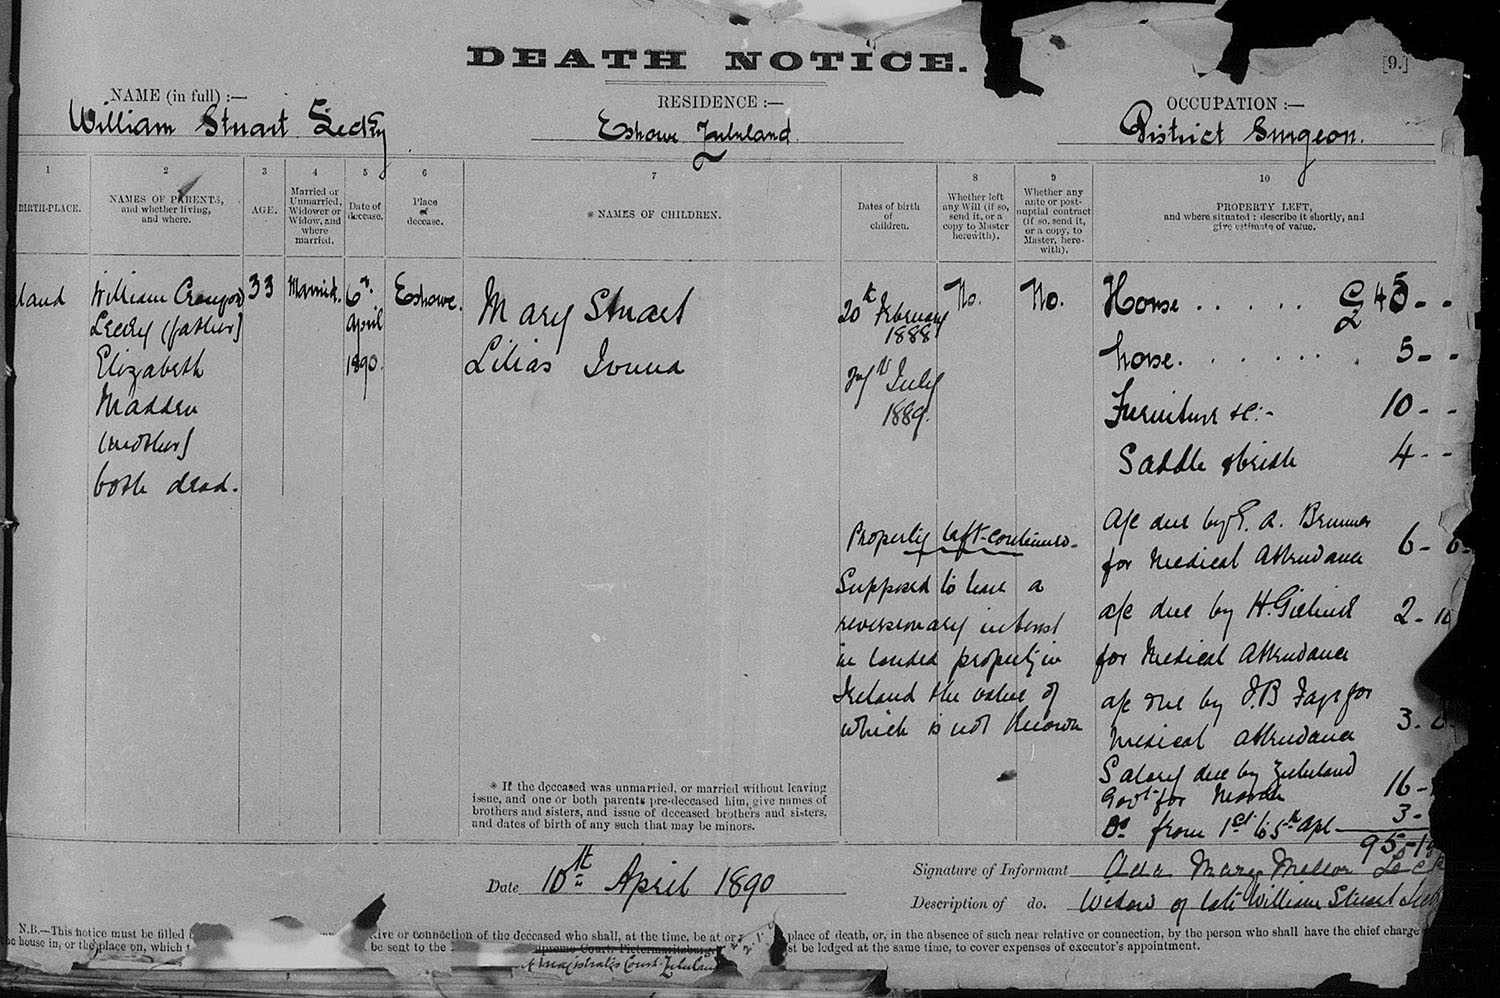 DEATH NOTICE.
[9.]
NAME (in full) :—
William Stuart Lecky
RESIDENCE :—
Eshowe Zululand.
OCCUPATION :—
District Surgeon.
1
BIRTH-PLACE.
2
NAMES OF PARENTS,
and whether living,
and where.
3
AGE.
4
Married or
Unmarried,
Widower or
Widow, and
where
married.
5
Date of
decease.
6
Place
of
decease.
7
* NAMES OF CHILDREN.
Dates of birth
of
children.
8
Whether left
any Will (if so,
send it, or a
copy to Master
herewith).
9
Whether any
ante or post-
nuptial contract
(if so, send it,
or a copy, to
Master, here-
with).
10
PROPERTY LEFT,
and where situated : describe it shortly, and
give estimate of value.
land
William
Lecky (father)
Elizabeth
Madden
(mother)
both dead.
33
Married.
6th
April
1890.
Eshowe.
Mary Stuart
Lilias
20th February
1888
July
1889.
No.
No.
£45 - -
horse. 5 - -
Furniture &c:- 10 - -
Saddle & bridle 4 - -
a/c due by E. A. Brunner
for Medical Attendance 6 - 6
a/c due by H.
for Medical Attendance 2 - 10
a/c due by J.B
Medical Attendance 3 -
Salary due by Zululand
Govt for March 16 -
Do from 1st to 5th Apl 3 -
95 -
Property left continued-
Supposed to have a
reversionary interest
in landed property in
Ireland the value of
which is not known
* If the deceased was unmarried, or married without leaving
issue, and one or both parents pre-deceased him, give names of
brothers and sisters, and issue of deceased brothers and sisters,
and dates of birth of any such that may be minors.
Date 10th April 1890
Signature of Informant Ada Mary Mellor
Description of do. Widow of late William Stuart
N.B.—This notice must be filled
ive or connection of the deceased who shall, at the time, be at or
place of death, or, in the absence of such near relative or connection, by the person who shall have the chief charge
house in, or the place on, which
be sent to the
Supreme Court, Pietermaritzburg
st be lodged at the same time, to cover expenses of executor's appointment.
Magistrates Court Zululand